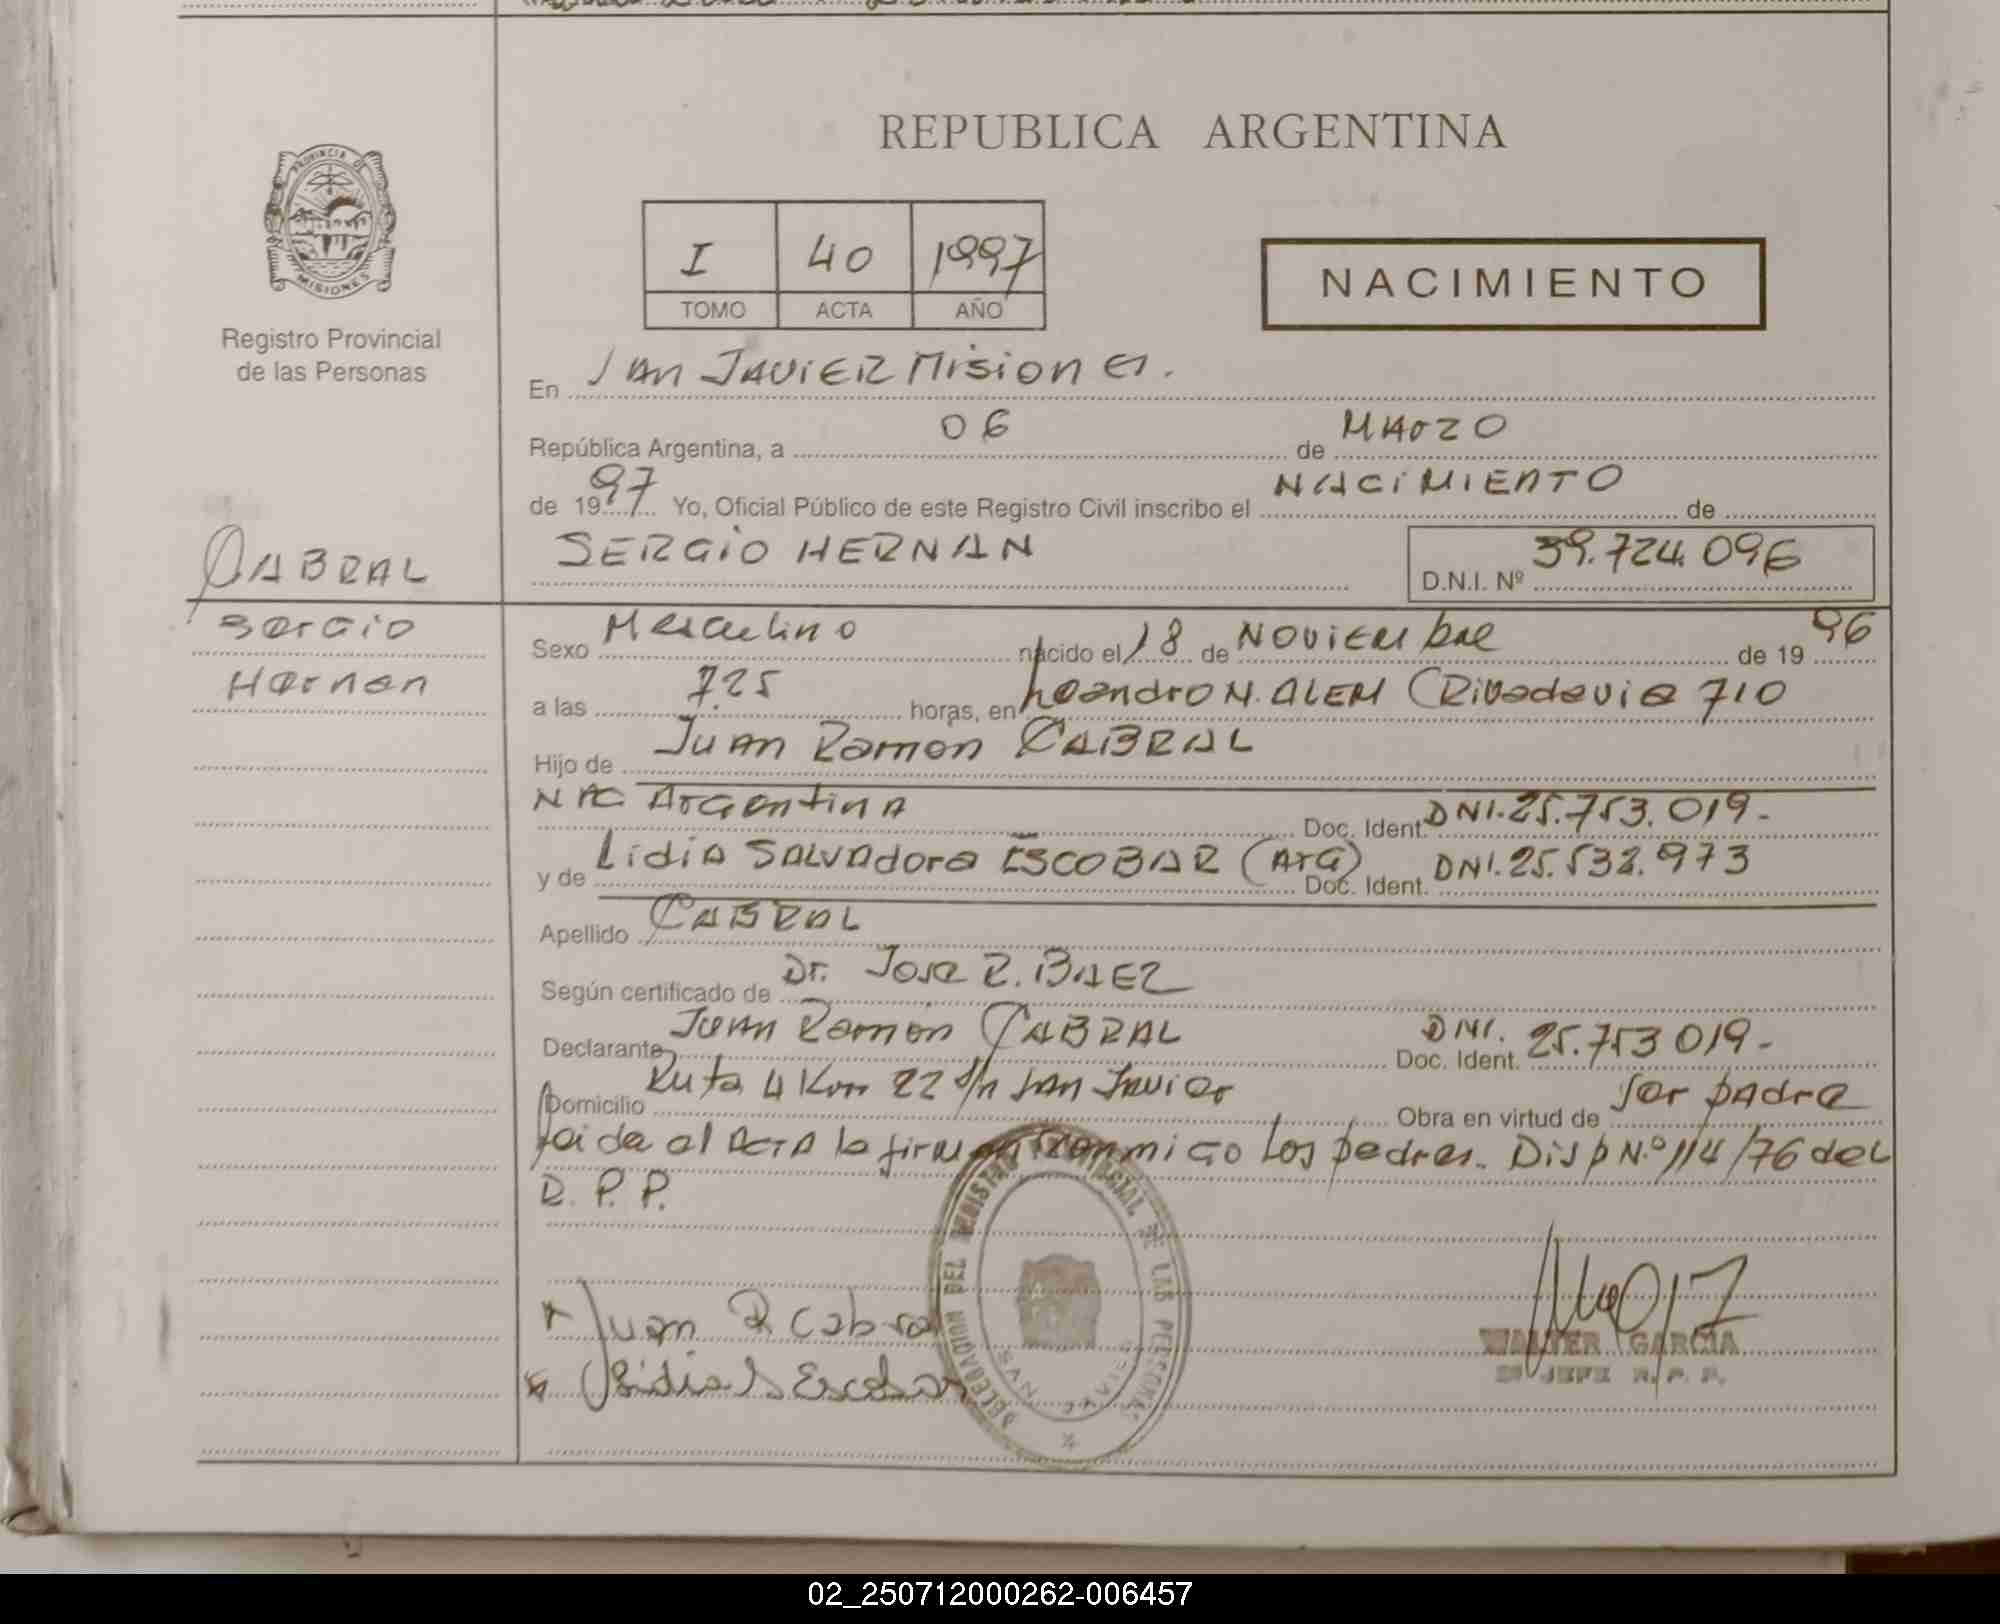 REPUBLICA ARGENTINA
PROVINCIA DE
MISIONES
Registro Provincial
de las Personas
I 40 1997
TOMO ACTA AÑO
NACIMIENTO
En San Javier Misiones.
República Argentina, a 06 de Marzo
de 1997 Yo, Oficial Público de este Registro Civil inscribo el NACIMIENTO de
SERGIO HERNAN D.N.I. Nº 39.724.096
CABRAL
Sergio
Hernan
Sexo Masculino nacido el 18 de Noviembre de 1996
a las 7.25 horas, en Leandro N. ALEM (Rivadavia 710
Hijo de Juan Ramon CABRAL
NAC Argentina Doc. Ident. DNI.25.753.019-
y de Lidia Salvadora ESCOBAR (Arg) Doc. Ident. DNI.25.532.973
Apellido CABRAL
Según certificado de Dr. Jose R. BAEZ
Declarante Juan Ramon CABRAL Doc. Ident. DNI. 25.753 019-
Domicilio Ruta 4 Km 22 s/n San Javier Obra en virtud de ser padre
Leida el ACTA la firman conmigo Los padres. Disp N.º 114/76 del
R. P. P.
DELEGACION DEL REGISTRO PROVINCIAL DE LAS PERSONAS
SAN JAVIER
Juan R Cabral
Lidia S Escobar
WALTER GARCIA
JEFE R. P. P.
02_250712000262-006457